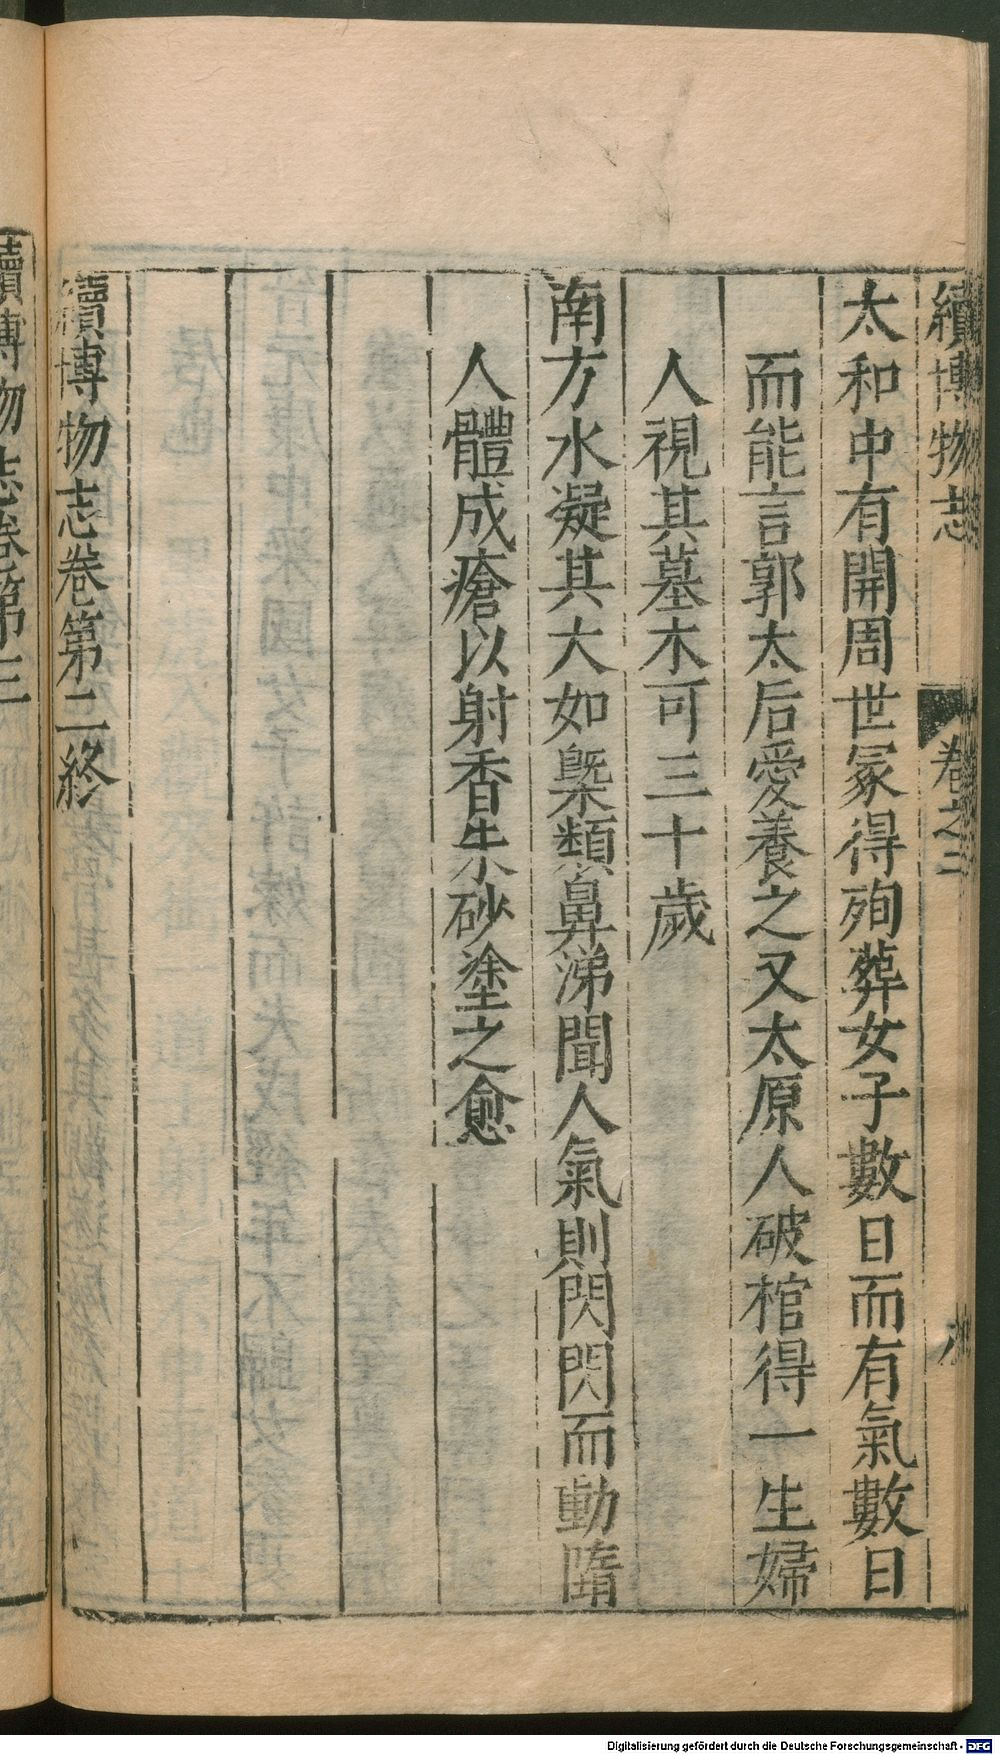 續博物志
卷之二
太和中有開周世冢得殉葬女子數日而有氣數日
而能言郭太后愛養之又太原人破棺得一生婦
人視其墓木可三十歲
南方水凝其大如槩類鼻涕聞人氣則閃閃而動隋
人體成瘡以射香朱砂塗之愈
續博物志卷第二終
續博物志卷第三
Digitalisierung gefördert durch die Deutsche Forschungsgemeinschaft - DFG